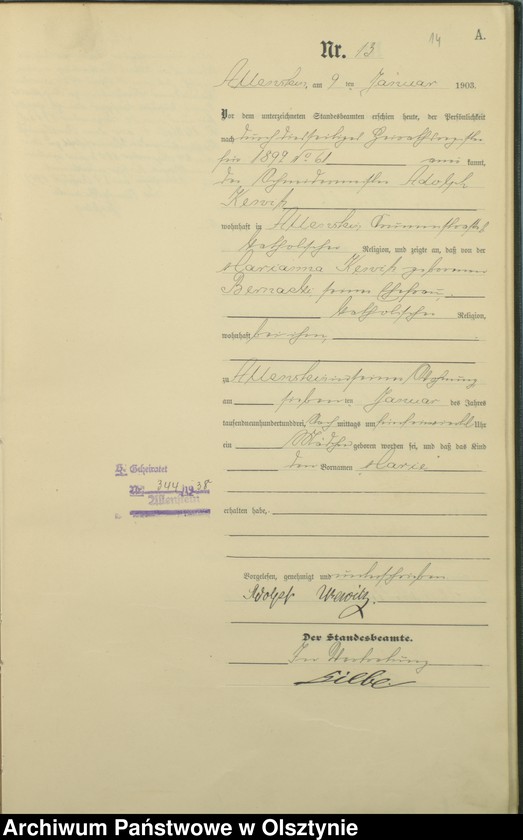 14
A.
Nr. 13
Allenstein, am 9 ten Januar 1903.
Vor dem unterzeichneten Standesbeamten erschien heute, der Persönlichkeit
nach durch diesseitiges Heirathsregister
für 1899 No 61 kannt,
der Schneidermeister Adolph
wohnhaft in Allenstein,
katholischer Religion, und zeigte an, daß von der
Marianna geborenen
Bernacki seiner Ehefrau,
katholischer Religion,
wohnhaft bei ihm,
zu Allenstein in seiner Wohnung
am sieben ten Januar des Jahres
tausendneunhundertunddrei, Nachmittags um Uhr
ein Mädchen geboren worden sei, und daß das Kind
den Vornamen Marie
H. Geheiratet
Nr. 344/1938
Allenstein
erhalten habe,
Vorgelesen, genehmigt und unterschrieben
Adolf
Der Standesbeamte.
In Vertretung
Archiwum Państwowe w Olsztynie